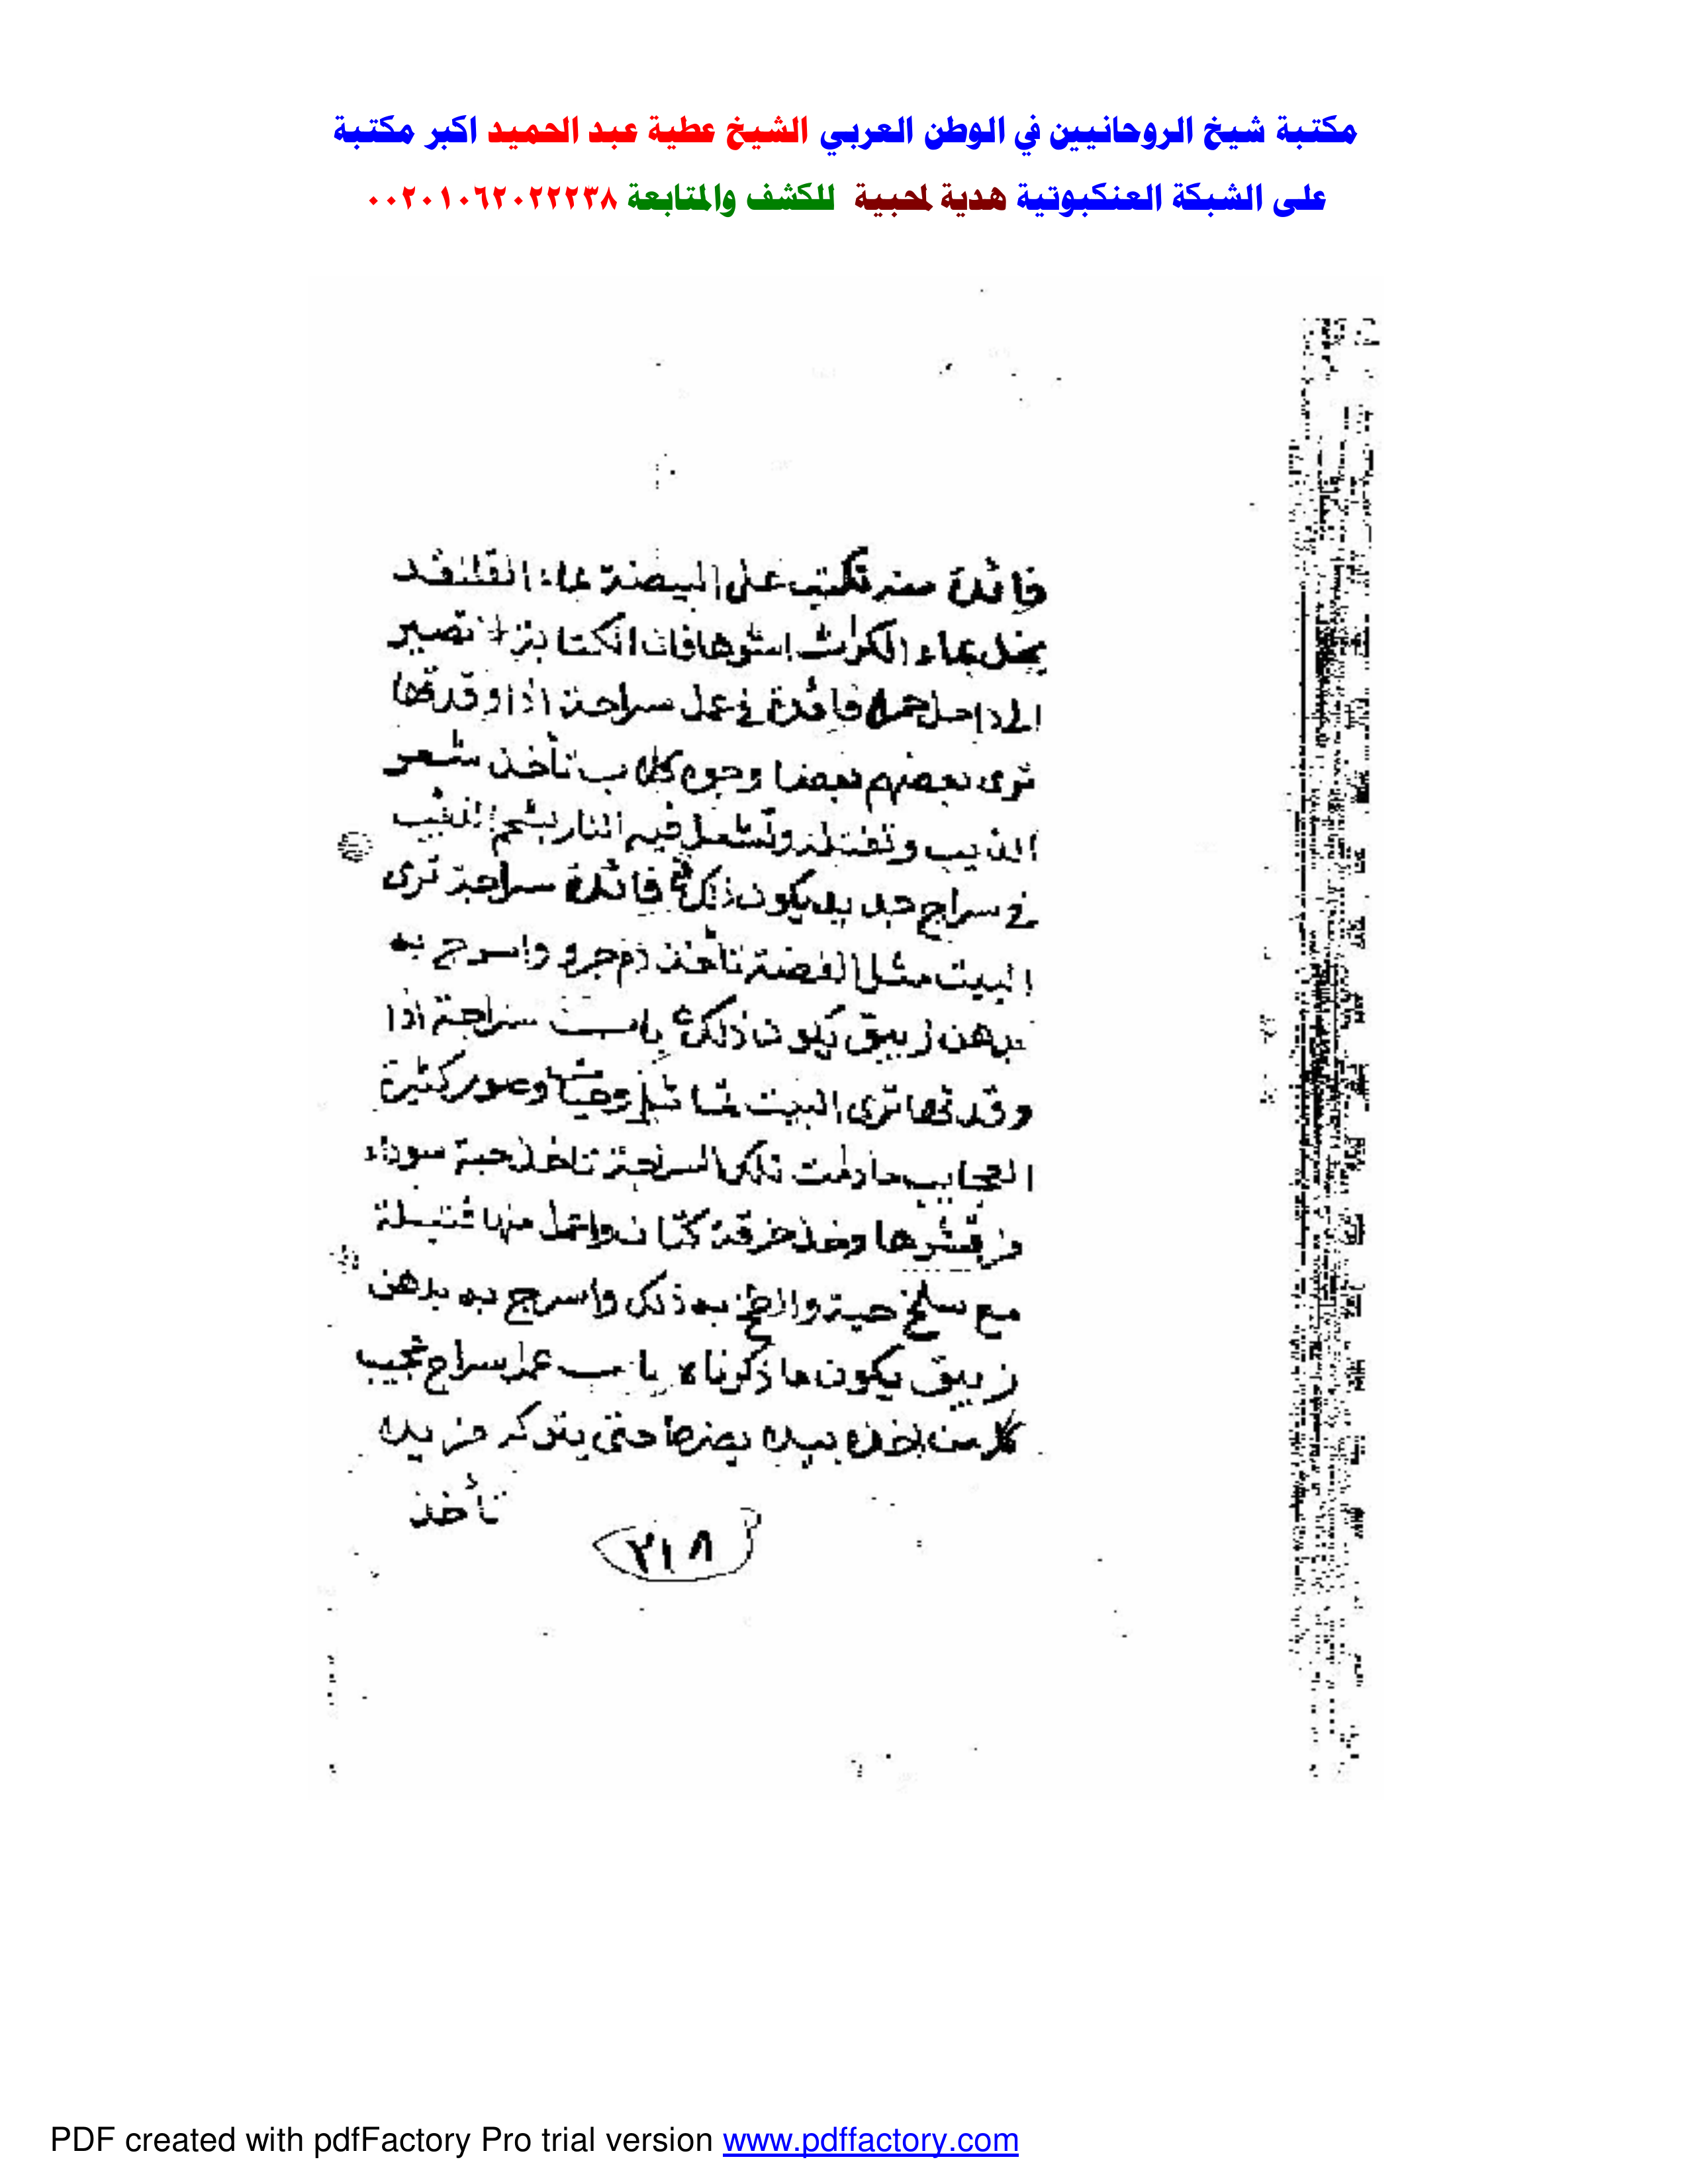 مكتبة شيخ الروحانيين في الوطن العربي الشيخ عطية عبد الحميد اكبر مكتبة
على الشبكة العنكبوتية هدية لمحبية للكشف والمتابعة ٠٠٢٠١٠٦٢٠٢٢٢٣٨
فائدة منه تكتب على البيضة بماء القلقند
بخل بماء الكراث اشوها فان الكتابة تصير
الى داخل فائدة في عمل سراجة اذا وقدتها
ترى بعضهم بعضا وجوه كلاب تأخذ شعر
الذيب وتفتله وتشعل فيه النار بشحم الذئب
في سراج جديد يكون ذلك فائدة سراجة ترى
البيت مثل الفضة تأخذ دم جرو واسرج به
بدهن زيبق يكون ذلك باب سراجة اذا
وقدتها ترى البيت وصور كثيرة
العجايب مادامت تلك السراجة تاخذ حية سوداء
وخذ خرقة كتان واعمل منها فتيلة
مع سلخ حية والطخ به ذلك واسرج به بدهن
زيبق يكون ما ذكرناه باب عمل سراج عجيب
كل من اخذه بيده حتى يتركه من يده
تأخذ
٣١٨
PDF created with pdfFactory Pro trial version www.pdffactory.com